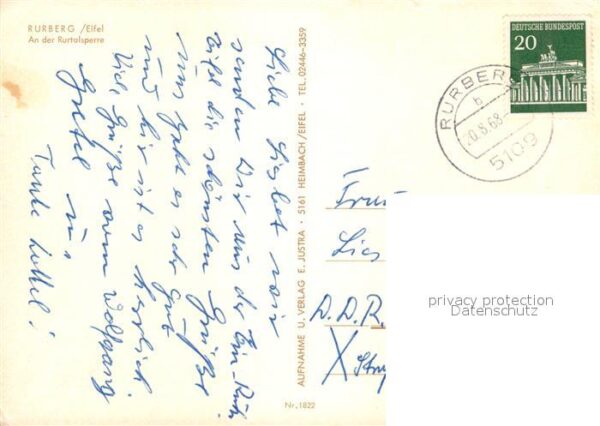 RURBERG /Eifel
An der Rurtalsperre
Liebe Lisbet wir
senden Dir aus der
Eifel die schönsten Grüße
uns geht es sehr gut
und hier ist es herrlich
Viele Grüße vom Wolfgang,
Gretel u.
Tante
AUFNAHME U. VERLAG E. JUSTRA · 5161 HEIMBACH/EIFEL · TEL. 02446-3359
Nr. 1822
DEUTSCHE BUNDESPOST
20
RURBERG
b
20.8.68
5109
Frau
Lies
D.D.R.
X
privacy protection
Datenschutz